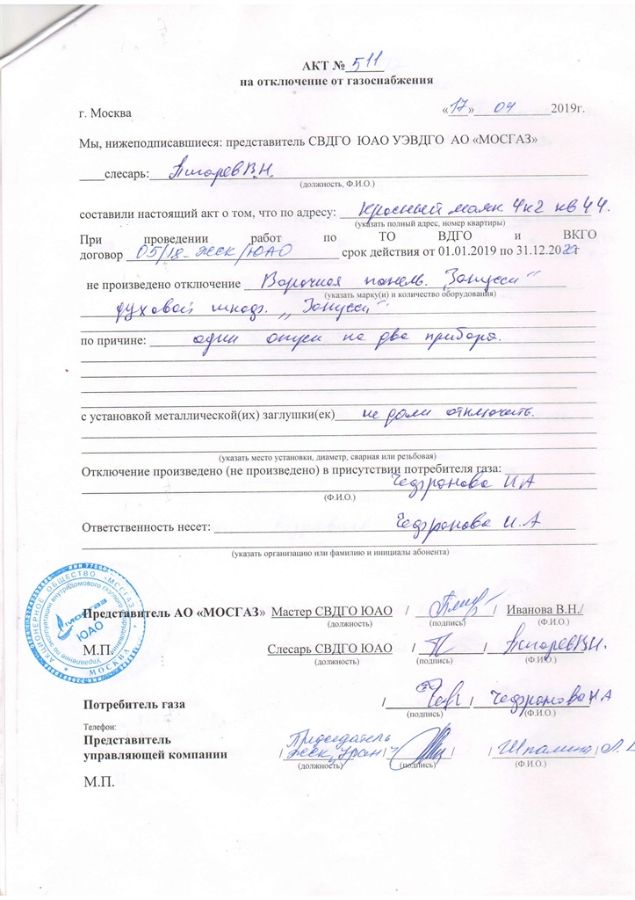 АКТ № 511
на отключение от газоснабжения
г. Москва «17» 04 2019г.
Мы, нижеподписавшиеся: представитель СВДГО ЮАО УЭВДГО АО «МОСГАЗ»
слесарь: В.Н.
(должность, Ф.И.О.)
составили настоящий акт о том, что по адресу: Красный маяк 4к2 кв 44.
(указать полный адрес, номер квартиры)
При проведении работ по ТО ВДГО и ВКГО
договор 05/18-ЖСК/ЮАО срок действия от 01.01.2019 по 31.12.20
не произведено отключение Варочная панель. "Занусси"
(указать марку(и) и количество оборудования)
духовой шкаф. „Занусси"
по причине: один опуск на два прибора.
с установкой металлической(их) заглушки(ек) не дали отключить.
(указать место установки, диаметр, сварная или резьбовая)
Отключение произведено (не произведено) в присутствии потребителя газа:
И.А
(Ф.И.О.)
Ответственность несет: И.А
(указать организацию или фамилию и инициалы абонента)
АКЦИОНЕРНОЕ ОБЩЕСТВО «МОСГАЗ»
МОСГАЗ
ЮАО
МОСКВА
Представитель АО «МОСГАЗ» Мастер СВДГО ЮАО / / Иванова В.Н./
(должность) (подпись) (Ф.И.О.)
М.П. Слесарь СВДГО ЮАО / / В.Н.
(должность) (подпись) (Ф.И.О.)
Потребитель газа / / И.А
(подпись) (Ф.И.О.)
Телефон:
Представитель Председатель
управляющей компании / ЖСК „Уран" / / Шпалина Л.
(должность) (подпись) (Ф.И.О.)
М.П.